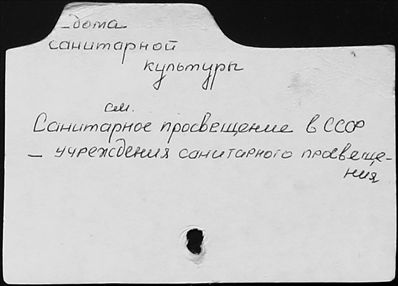 — дома
санитарной
культуры
см.
Санитарное просвещение в СССР
— учреждения санитарного просвеще-
ния